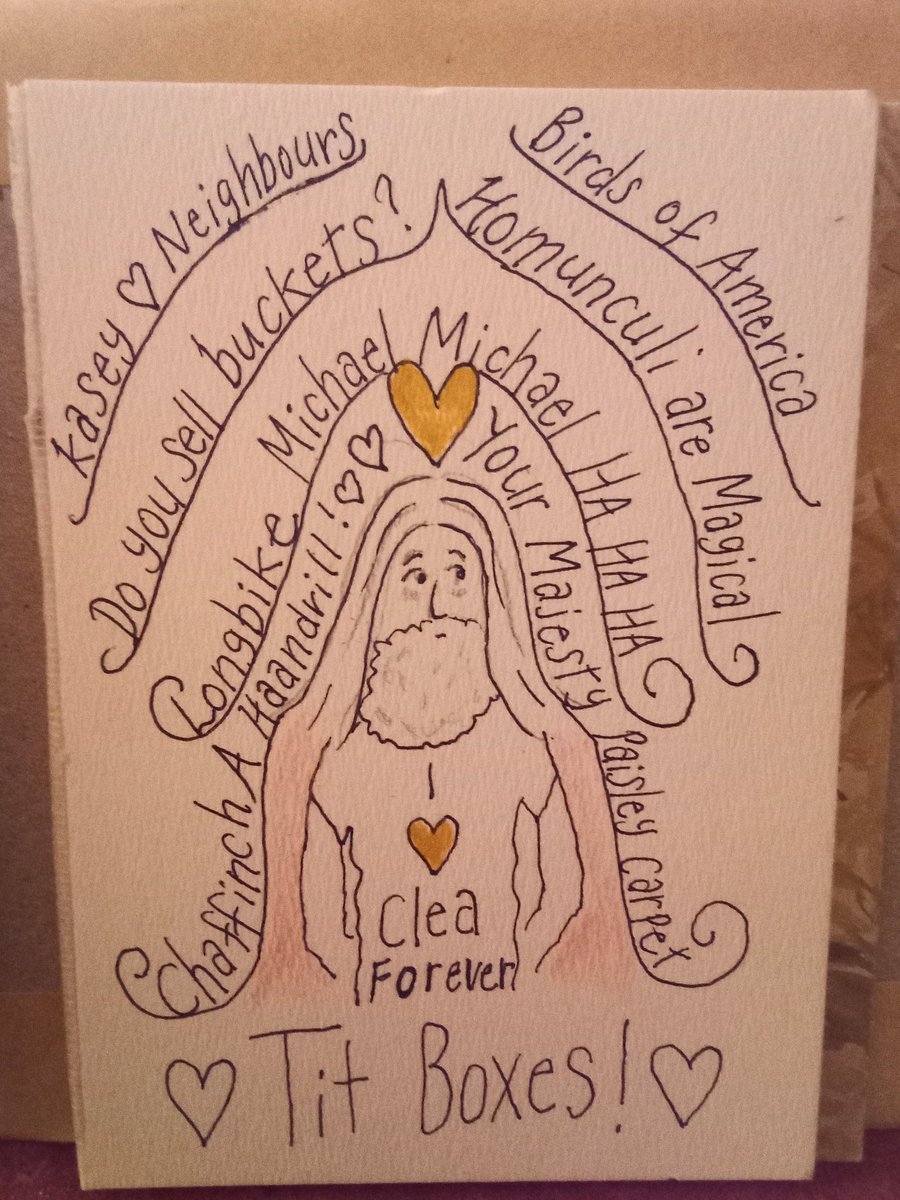 Kasey ♡ Neighbours
Birds of America
Do you sell buckets?
Homunculi are Magical
Longbike Michael
Michael HA HA HA HA
Chaffinch A Haandrill! ♡♡
Your Majesty Paisley Carpet
I
♥
Clea
Forever
♡ Tit Boxes! ♡